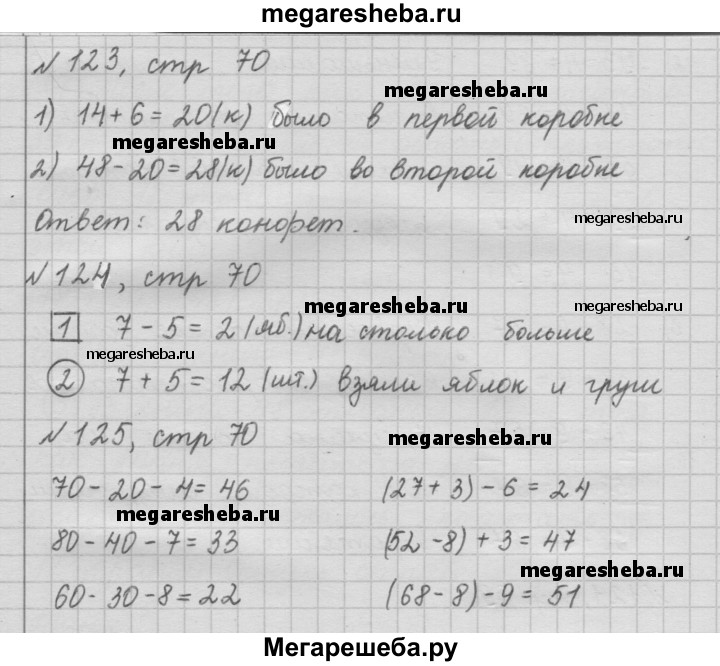 megaresheba.ru
№ 123, стр 70
megaresheba.ru
1) 14 + 6 = 20 (к) было в первой коробке
megaresheba.ru
2) 48 - 20 = 28 (к) было во второй коробке
Ответ: 28 конфет.
megaresheba.ru
№ 124, стр 70
megaresheba.ru
megaresheba.ru
1 7 - 5 = 2 (яб.) на столько больше
megaresheba.ru
2 7 + 5 = 12 (шт.) взяли яблок и груш
№ 125, стр 70
megaresheba.ru
70 - 20 - 4 = 46 (27 + 3) - 6 = 24
megaresheba.ru
80 - 40 - 7 = 33 (52 - 8) + 3 = 47
megaresheba.ru
60 - 30 - 8 = 22 (68 - 8) - 9 = 51
Мегарешеба.ру